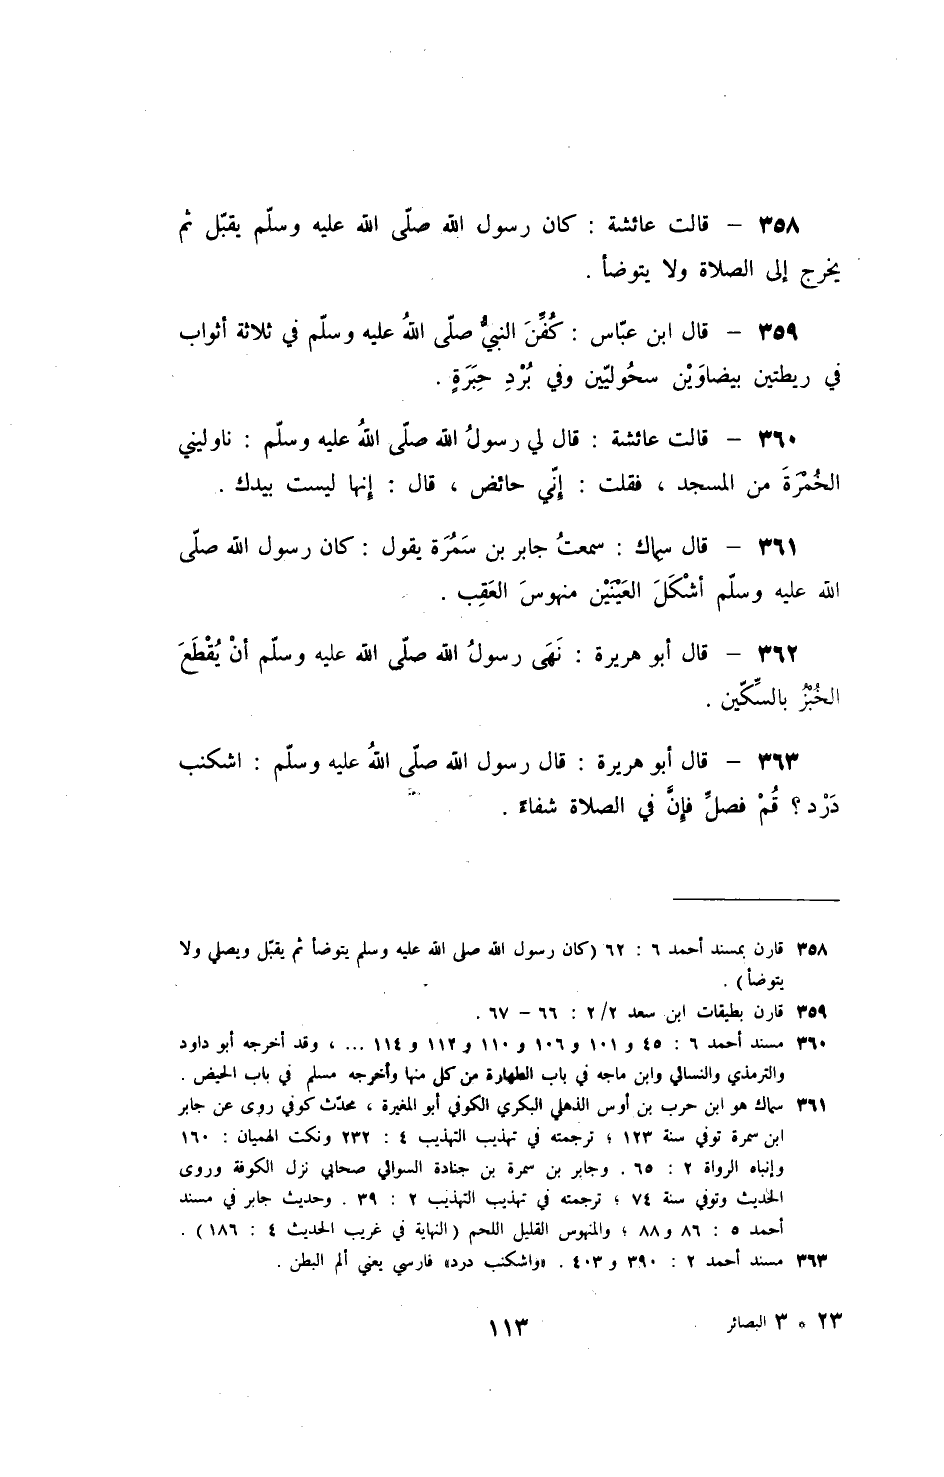 ٣٥٨ – قالت عائشة : كان رسول الله صلّى الله عليه وسلّم يقبّل ثم
يخرج إلى الصلاة ولا يتوضأ .
٣٥٩ – قال ابن عبّاس : كُفِّنَ النبيُّ صلّى اللهُ عليه وسلّم في ثلاثة أثواب
في ريطتين بيضاوَيْن سحُوليّين وفي بُرْدِ حِبَرَةٍ .
٣٦٠ – قالت عائشة : قال لي رسولُ الله صلّى اللهُ عليه وسلّم : ناوليني
الخُمْرَةَ من المسجد ، فقلت : إنّي حائض ، قال : إنها ليست بيدك .
٣٦١ – قال سماك : سمعتُ جابر بن سَمُرَة يقول : كان رسول الله صلّى
الله عليه وسلّم أشْكَلَ العَيْنَيْن منهوسَ العَقِب .
٣٦٢ – قال أبو هريرة : نَهَى رسولُ الله صلّى الله عليه وسلّم أنْ يُقْطَعَ
الخُبْزُ بالسِّكّين .
٣٦٣ – قال أبو هريرة : قال رسول الله صلّى اللهُ عليه وسلّم : اشكنب
دَرْد ؟ قُمْ فصلِّ فإنَّ في الصلاة شفاءً .
٣٥٨ قارن بمسند أحمد ٦ : ٦٢ (كان رسول الله صلى الله عليه وسلم يتوضأ ثم يقبّل ويصلي ولا
يتوضأ) .
٣٥٩ قارن بطبقات ابن سعد ٢/٢ : ٦٦ – ٦٧ .
٣٦٠ مسند أحمد ٦ : ٤٥ و ١٠١ و ١٠٦ و ١١٠ و ١١٢ و ١١٤ ... ، وقد أخرجه أبو داود
والترمذي والنسائي وابن ماجه في باب الطهارة من كل منها وأخرجه مسلم في باب الحيض .
٣٦١ سماك هو ابن حرب بن أوس الذهلي البكري الكوفي أبو المغيرة ، محدّث كوفي روى عن جابر
ابن سمرة توفي سنة ١٢٣ ؛ ترجمته في تهذيب التهذيب ٤ : ٢٣٢ ونكت الهميان : ١٦٠
وإنباه الرواة ٢ : ٦٥ . وجابر بن سمرة بن جنادة السوائي صحابي نزل الكوفة وروى
الحديث وتوفي سنة ٧٤ ؛ ترجمته في تهذيب التهذيب ٢ : ٣٩ . وحديث جابر في مسند
أحمد ٥ : ٨٦ و ٨٨ ؛ والمنهوس القليل اللحم (النهاية في غريب الحديث ٤ : ١٨٦) .
٣٦٣ مسند أحمد ٢ : ٣٩٠ و ٤٠٣ . «واشكنب درد» فارسي يعني ألم البطن .
٢٣ * ٣ البصائر
١١٣